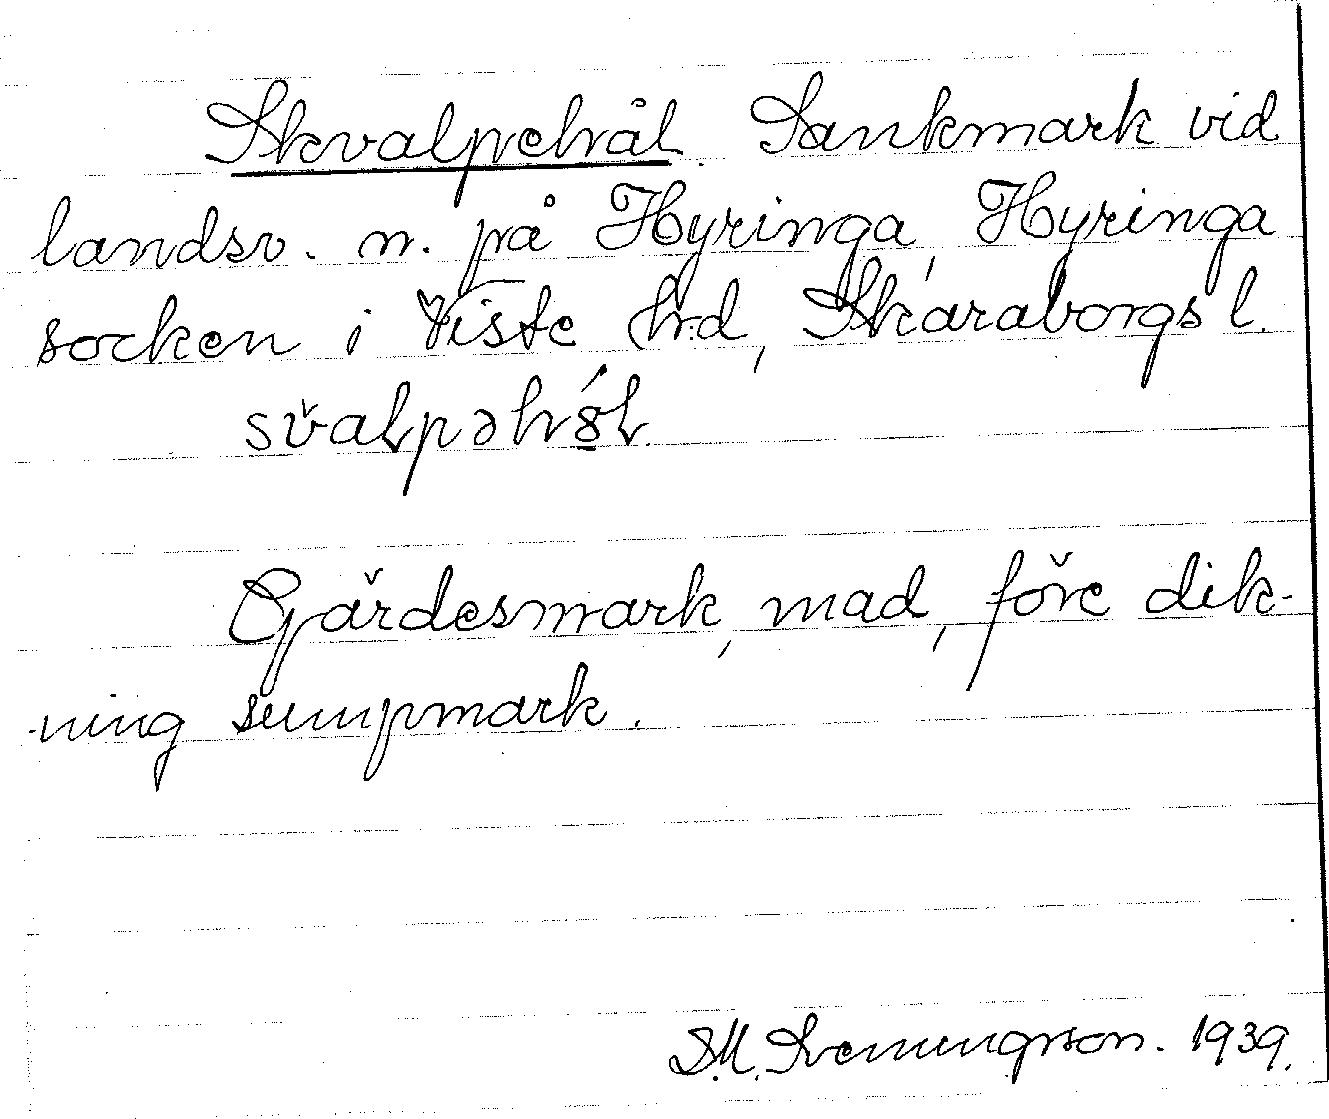 Skvalpehål. Sankmark vid
landsv. n. på Hyringa, Hyringa
socken i Viste hrd, Skaraborgs l.
Gärdesmark, mad, före dik-
ning sumpmark.
S.M. 1939.